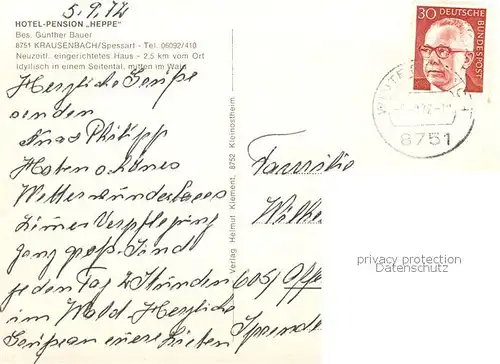 5.9.72
HOTEL-PENSION „HEPPE"
Bes. Günther Bauer
8751 KRAUSENBACH/Spessart - Tel. 06092/410
Neuzeitl. eingerichtetes Haus - 2,5 km vom Ort
Idyllisch in einem Seitental, mitten im Wald
Herzliche Grüße
senden
Philipp
Haben schönes
Wetter wunderbares
Zimmer Verpflegung
ganz groß. Sind
jeden Tag 2 Stunden
im Wald. Herzliche
Grüße an eure Lieben
Verlag Helmut Klement, 8752 Kleinostheim
30
DEUTSCHE BUNDESPOST
8751
Familie
605 Offe
privacy protection
Datenschutz